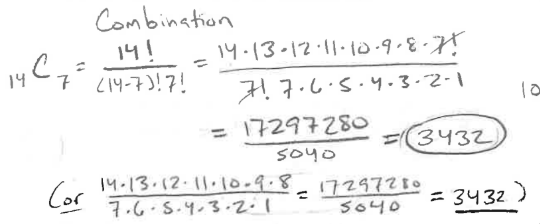 Combination
₁₄C₇ = 14! / (14-7)!7! = 14·13·12·11·10·9·8·7! / 7! 7·6·5·4·3·2·1
10
= 17297280 / 5040 = 3432
(or 14·13·12·11·10·9·8 / 7·6·5·4·3·2·1 = 17297280 / 5040 = 3432)